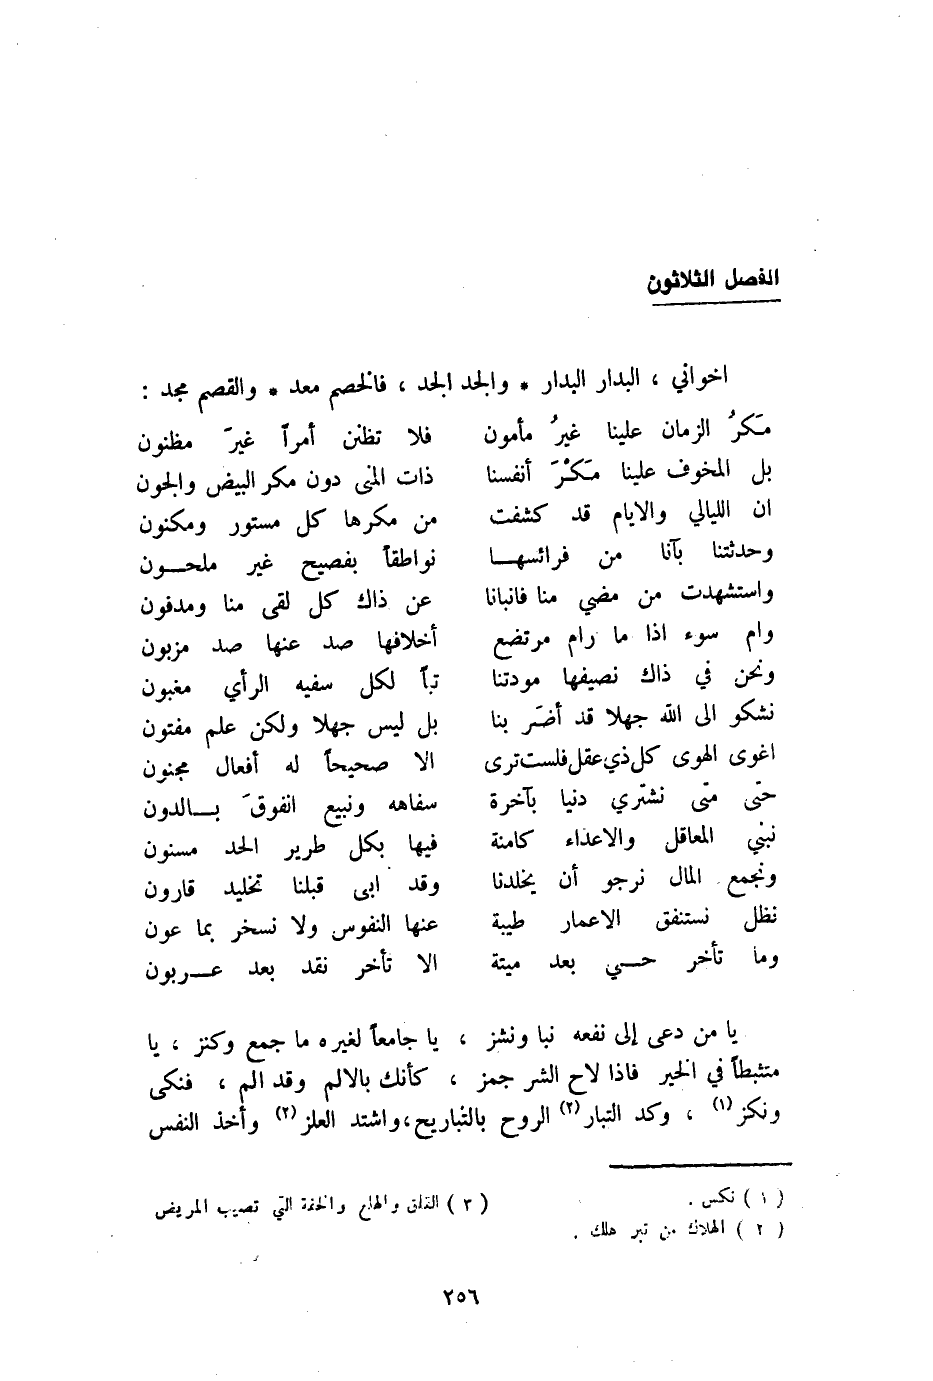 الفصل الثلاثون
اخواني ، البدار البدار * والجد الجد ، فالخصم معد * والقصم مجد :
مَكرُ الزمان علينا غيرُ مأمون فلا تظنن أمراً غيرَ مظنون
بل المخوف علينا مَكْرَ أنفسنا ذات المنى دون مكر البيض والجون
ان الليالي والايام قد كشفت من مكرها كل مستور ومكنون
وحدثتنا بآنا من فرائسهـا نواطقاً بفصيح غير ملحـون
واستشهدت من مضي منا فانبانا عن ذاك كل لقى منا ومدفون
وام سوء اذا ما رام مرتضع أخلافها صد عنها صد مزبون
ونحن في ذاك نصيفها مودتنا تباً لكل سفيه الرأي مغبون
نشكو الى الله جهلا قد أضَر بنا بل ليس جهلا ولكن علم مفتون
اغوى الهوى كل ذي عقل فلست ترى الا صحيحاً له أفعال مجنون
حتى متى نشتري دنيا بآخرة سفاهه ونبيع انفوقَ بـالدون
نبني المعاقل والاعداء كامنة فيها بكل طرير الحد مسنون
ونجمع المال نرجو أن يخلدنا وقد ابى قبلنا تخليد قارون
نظل نستنفق الاعمار طيبة عنها النفوس ولا نسخر بما عون
وما تأخر حـي بعد ميتة الا تأخر نقد بعد عـربون
يا من دعى إلى نفعه نبا ونشز ، يا جامعاً لغيره ما جمع وكنز ، يا
متثبطاً في الخير فاذا لاح الشر جمز ، كأنك بالالم وقد الم ، فنكى
ونكز (١) ، وكد التبار (٢) الروح بالتباريح ، واشتد العلز (٢) وأخذ النفس
( ١ ) نكس . ( ٣ ) القلق والهلع والخفة التي تصيب المريض
( ٢ ) الهلاك من تبر هلك .
٢٥٦